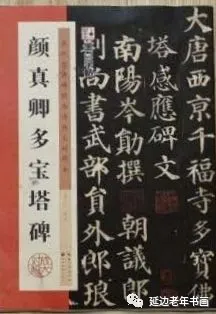 颜真卿多宝塔碑
大唐西京千福寺多寶佛
塔感應碑文
南陽岑勛撰 朝議郎
判尚書武部員外郎琅
延边老年书画